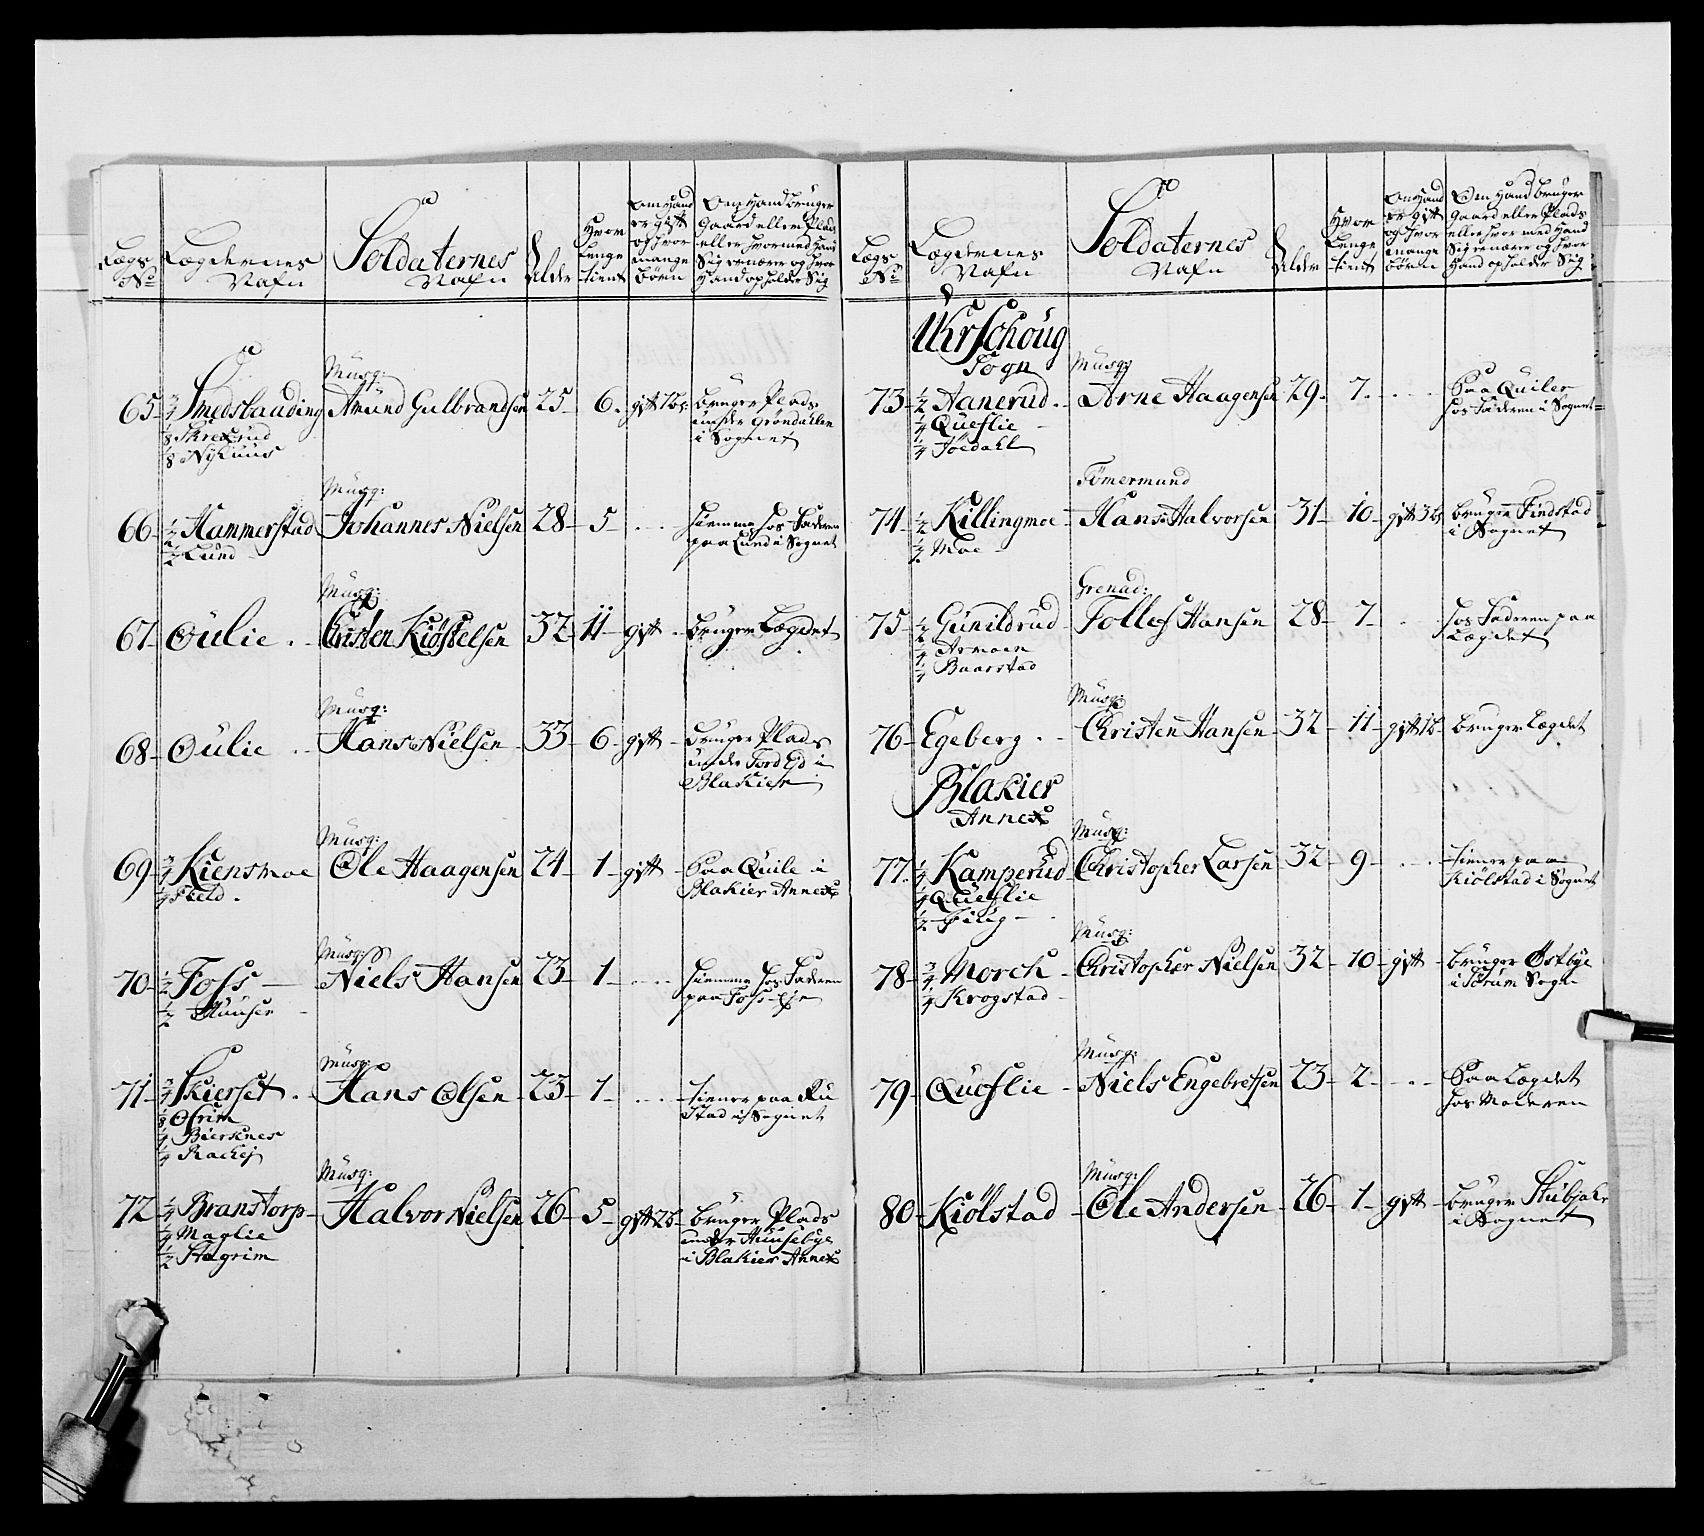 Lægs
No
Lægdernes
Nafn
Soldaternes
Nafn
Alder
Hvor
Lenge
tient
Om Hand
er gift
og hvor
mange
Børn
Om Hand bruger
Gaard eller Plads
eller hvormed Hand
Sig ernærer og hvor
Hand opholder Sig
65 3/4 Smedsbauding
1/8 Skrexrud
1/8 Nyhuus
Musq:
Amund Gulbrandsen 25 6. gift 1 b:
bruger Plads
under Grøndahlen
i Sognet
66 1/2 Hammerstad
1/2 Lund
Musq:
Johannes Nielsen 28 5
hiemme hos Faderen
paa Lund i Sognet
67 Oulie
Musq:
Christen Kiøstelsen 32 11 gift
bruger Lægdet
68 Oulie
Musq:
Hans Nielsen 33 6 gift
bruger Plads
under Ejd i
Blakier
69 3/4 Kiensmoe
1/4 Field
Musq:
Ole Haagensen 24 1 gift
Paa Quile i
Blakier Annex
70 1/2 Foss
1/2 Huuser
Musq:
Niels Hansen 23 1
hiemme hos Faderen
paa Foss Eje
71 3/4 Skierset
1/8
1/4 Biersnes
1/4
Musq:
Hans Olsen 23 1
tiener paa Ru
stad i Sognet
72 1/4 Branstorp
1/4 Maglie
1/2 Hegrim
Musq:
Halvor Nielsen 26 5 gift 2 b
bruger Plads
under Huusebye
i Blakier Annex
Lægs
No
Lægdernes
Nafn
Soldaternes
Nafn
Alder
Hvor
Lenge
tient
Om Hand
er gift
og hvor
mange
Børn
Om Hand bruger
Gaard eller Plads
eller hvor med Hand
Sig ernærer og hvor
Hand opholder Sig
Urschoug
Sogn
73 1/2 Aanerud
1/4 Queslie
1/4 Jøedahl
Musq:
Arne Haagensen 29 7
Paa Quiler
hos Faderen i Sognet
74 1/2 Killingmoe
1/2 Moe
Tømermand
Hans Halvorsen 31 10 gift 3 b
bruger Findstad
i Sognet
75 1/2 Gunildrud
1/4 Armoen
1/4 Baarstad
Grenad:
Tollef Hansen 28 7
hos Faderen paa
Lægdet
76 Egeberg
Musq:
Christen Hansen 32 11 gift 1 b
bruger Lægdet
Blakier
Annex
77 1/4 Kamperud
1/4 Queslie
1/2
Musq:
Christopher Larsen 32 9
tiener paa
Kiølstad i Sognet
78 3/4 Morch
1/4 Krogstad
Musq:
Christopher Nielsen 32 10 gift
bruger Østbye
i Sørum Sogn
79 Queslie
Musq:
Niels Engebretsen 23 2
Paa Lægdet
hos Moderen
80 Kiølstad
Musq:
Ole Andersen 26 1 gift
bruger
i Sognet